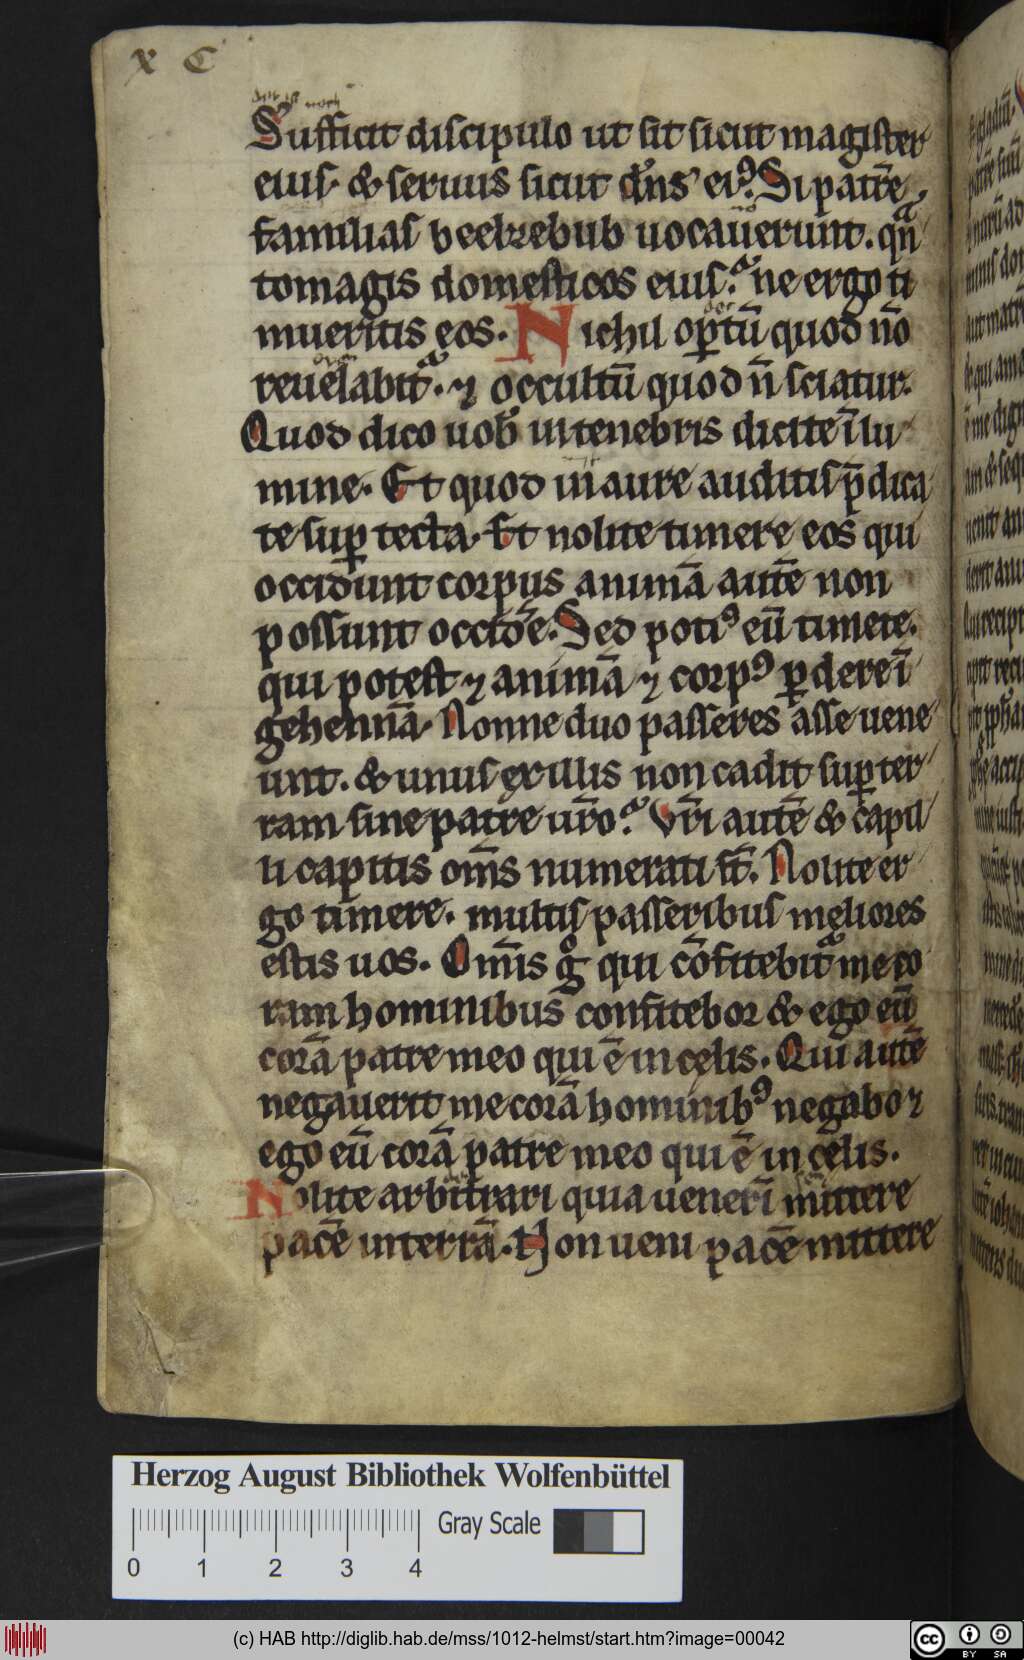 x C
Sufficit discipulo ut sit sicut magister
eius · & seruus sicut dn̄s eiꝰ. Si patrē
familias beelzebub uocauerunt. qn̄
tomagis domesticos eius. ne ergo ti
mueritis eos. Nichil op̄tū quod nō
reuelabit᷑. ⁊ occultū quod n̄ sciatur.
Quod dico uob̄ in tenebris dicite ī lu
mine. Et quod in aure auditis p̄dica
te suꝑ tecta. Et nolite timere eos qui
occidunt corpus animā autē non
possunt occidē. Sed potiꝰ eū timete.
qui potest ⁊ animā ⁊ corpꝰ ꝑdere ī
gehennā. Nonne duo passeres asse uene
unt. & unus ex illis non cadit suꝑ ter
ram sine patre ur̄o. Vr̄i autē & capil
li capitis om̄s numerati st̄. Nolite er
go timere. multis passeribus meliores
estis uos. Om̄is gͦ qui cōfitebit᷑ me co
ram hominibus confitebor & ego eū
corā patre meo qui ē in celis. Qui autē
negauerit me corā hominibꝰ negabo ⁊
ego eū corā patre meo qui ē in celis.
Nolite arbitrari quia uenerī mittere
pacē in terrā. Non ueni pacē mittere
Herzog August Bibliothek Wolfenbüttel
0 1 2 3 4
Gray Scale
(c) HAB http://diglib.hab.de/mss/1012-helmst/start.htm?image=00042
cc BY SA